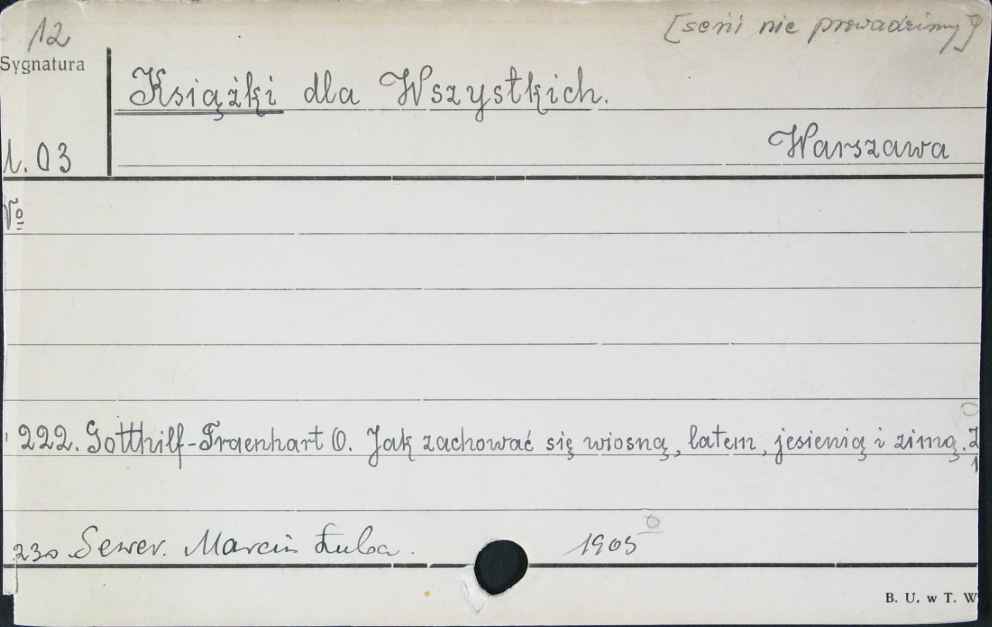 12 [serii nie prowadzimy]
Sygnatura
Książki dla Wszystkich.
Warszawa
1.03
No
222. Gotthilf-Fraenhart O. Jak zachować się wiosną, latem, jesienią i zimą.
230 Sewer. Marcin Łuba. 1905
B. U. w T. W